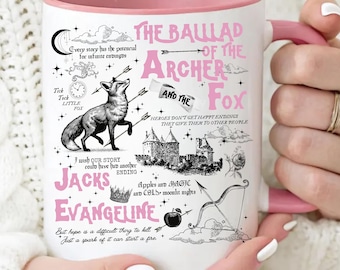 THE BALLAD
OF THE
ARCHER
AND THE
FOX
Every story has the potential
for infinite endings
Tick
Tock
LITTLE
FOX
HEROES DON'T GET HAPPY ENDINGS
THEY GIVE THEM TO OTHER PEOPLE
I wish OUR STORY
could have had another
ENDING
JACKS
EVANGELINE
Apples are MAGIC
and CRLS+ moonlit nights
But hope is a difficult thing to kill
Just a spark of it can start a fire